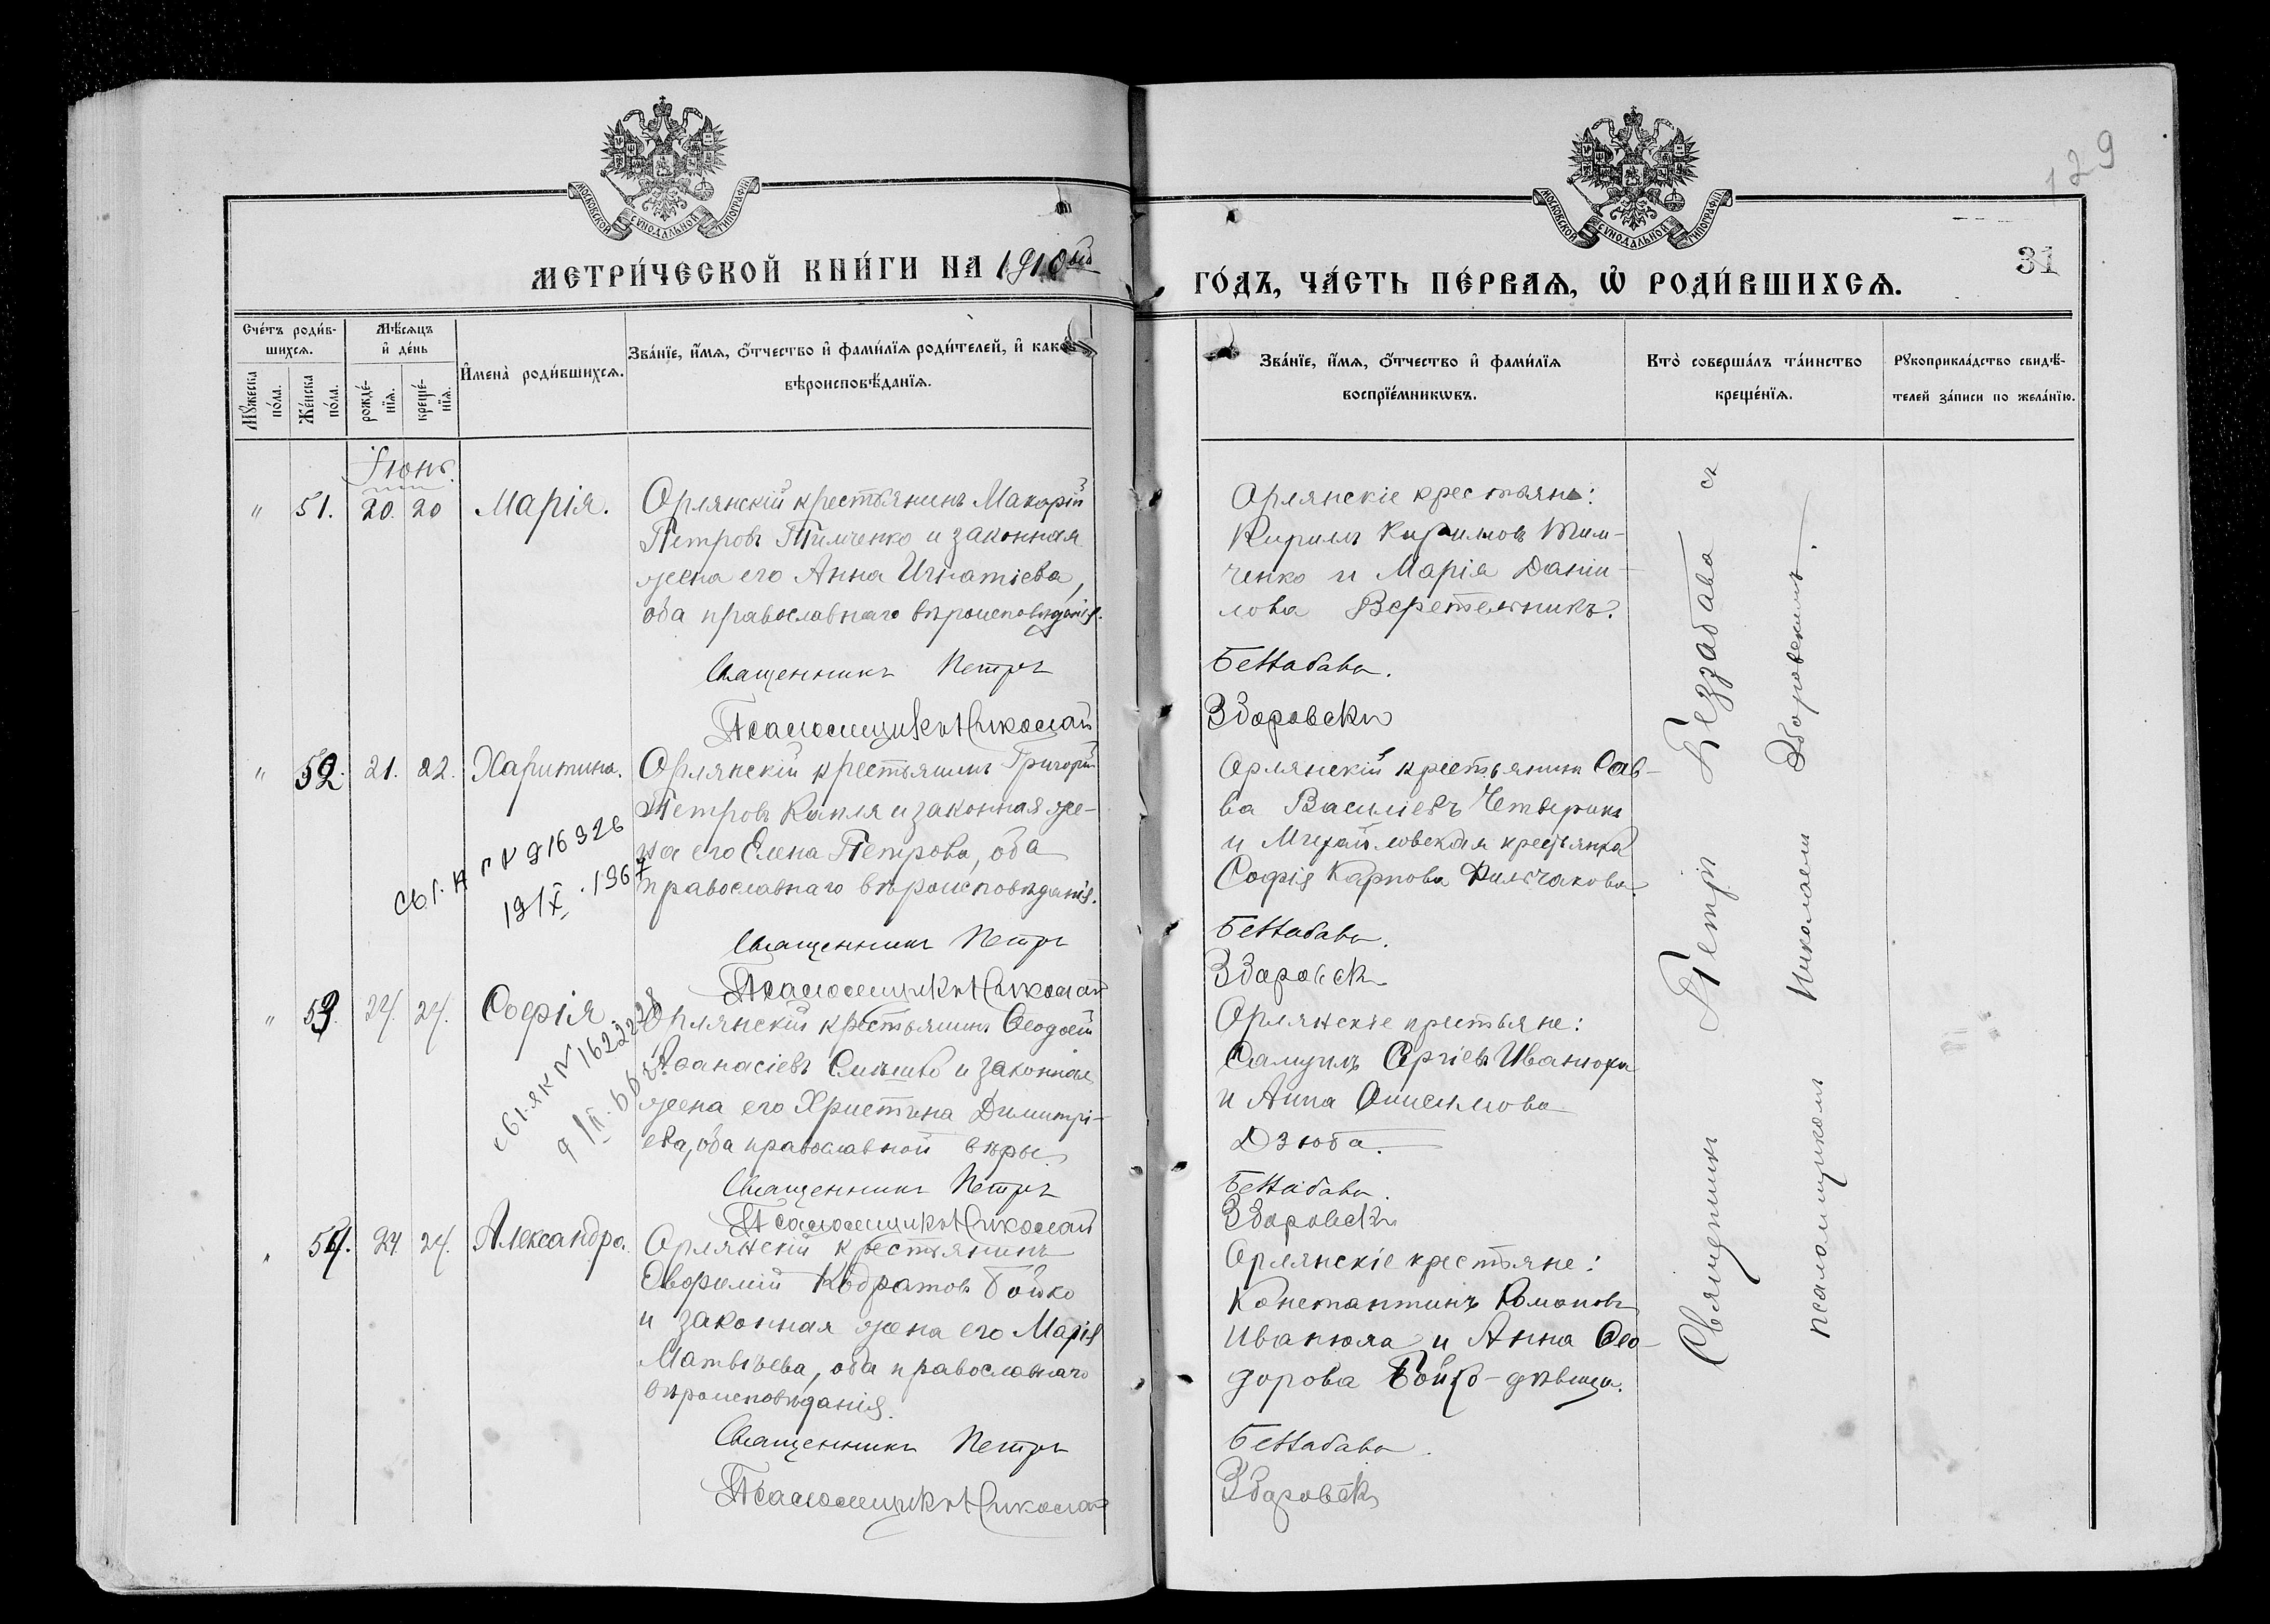 129
31
МОСКОВСКОЙ СѴНОДАЛЬНОЙ ТИПОГРАФІИ
МОСКОВСКОЙ СѴНОДАЛЬНОЙ ТИПОГРАФІИ
МЕТРИ́ЧЕСКОЙ КНИ́ГИ НА 1910ый
ГО́ДЪ, ЧА́СТЬ ПЕ́РВАѦ, Ѡ҆ РОДИ́ВШИХСѦ.
Сче́тъ роди́в-
шихсѧ.
Мꙋ́жеска
по́ла.
Же́нска
по́ла.
Мѣ́сѧцъ
и҆ де́нь
рожде́-
нїѧ.
креще́-
нїѧ.
И҆мена̀ роди́вшихсѧ.
Зва́нїе, и҆́мѧ, ѻ҆́тчество и҆ фами́лїѧ роди́телей, и҆ како́гѡ
вѣроисповѣ́данїѧ.
Зва́нїе, и҆́мѧ, ѻ҆́тчество и҆ фами́лїѧ
воспрїе́мникѡвъ.
Кто̀ соверша́лъ та́инство
креще́нїѧ.
Рꙋкоприкла́дство свидѣ́-
телей за́писи по жела́нїю.
Іюнь.
" 51. 20. 20 Марія.
Орлянскій крестьянинъ Макарій
Петровъ Тимченко и законная
жена его Анна Игнатіева,
оба православнаго вѣроисповѣданія.
Священникъ Петръ
Псаломщикъ Николай
Орлянскіе крестьяне:
Кирилъ Кириловъ Тим-
ченко и Марія Даніи-
лова Веретельникъ.
Беззабава.
Здоровскі
" 52. 21. 22. Харитина.
Орлянскій крестьянинъ Григорій
Петровъ Капля и законная же-
на его Елена Петрова, оба
православнаго вѣроисповѣданія.
Священникъ Петръ
Псаломщикъ Николай
№ 916326
19/X.1967
Орлянскій крестьянинъ Сав-
ва Василіевъ Четверикъ
и Михайловская крестьянка
Софія Карпова
Беззабава.
Здоровск
" 53. 24. 24. София
Орлянскій крестьянинъ Ѳеодосій
Аѳанасіевъ и законная
жена его Христина Димитрі-
ева, оба православной вѣры.
Священникъ Петръ
Псаломщикъ Николай
9/II.66
Орлянскіе крестьяне:
Самуилъ Сергіевъ Иванюха
и Анна Онисимова
Дзюба.
Беззабава.
Здоровскі
" 54. 24 24. Александра.
Орлянскій крестьянинъ
Евфимій Кодратовъ Бойко
и законная жена его Марія
Матвѣева, оба православнаго
вѣроисповѣданія.
Священникъ Петръ
Псаломщикъ Николай
Орлянскіе крестьяне:
Константинъ Романовъ
и Анна Ѳео-
дорова Бойко-дѣвица.
Беззабава.
Здоровск
Священникъ Петръ Беззабава съ
псаломщикомъ Николаемъ Здоровскимъ.